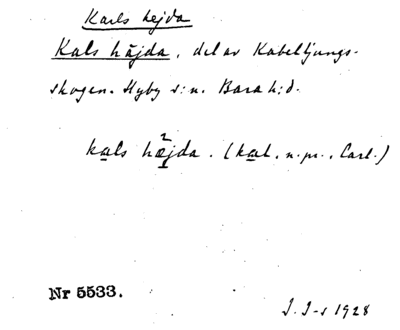 Karls hejda
Kals häjda, del av Kabelljungs-
skogen. Hyby s:n. Bara h:d.
kals hæjda. (kal, n.pr., Carl.)
Nr 5533.
I. I-s 1928